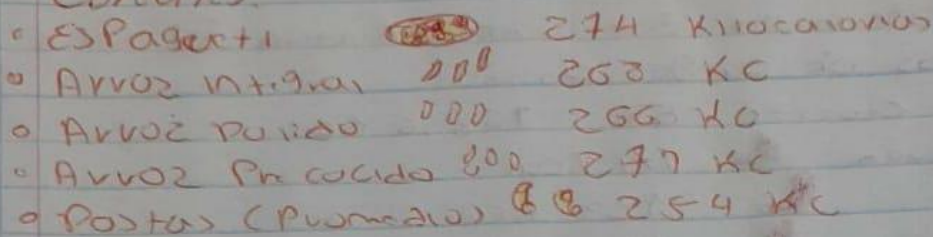 Espaguetti 274 Kilocalorias
Arroz integral 263 KC
Arroz pulido 266 KC
Arroz Pre cocido 277 KC
Pastas (Promedio) 254 KC